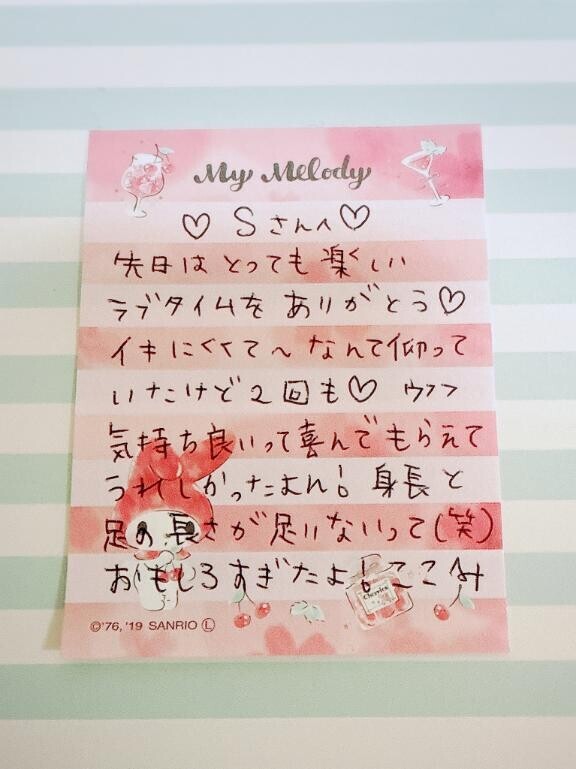 My Melody
♡ Sさんへ♡
先日は とっても 楽しい
ラブタイムを ありがとう♡
イキにくくて〜なんて仰って
いたけど2回も♡ ウフフ
気持ち良いって喜んでもらえて
うれしかったよん! 身長と
足の長さが足りないって(笑)
おもしろすぎたよ! ここみ
Cherries
©'76, '19 SANRIO Ⓛ